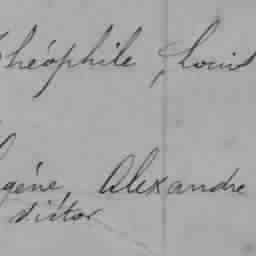 Théophile, Louis
gène, Alexandre
victor